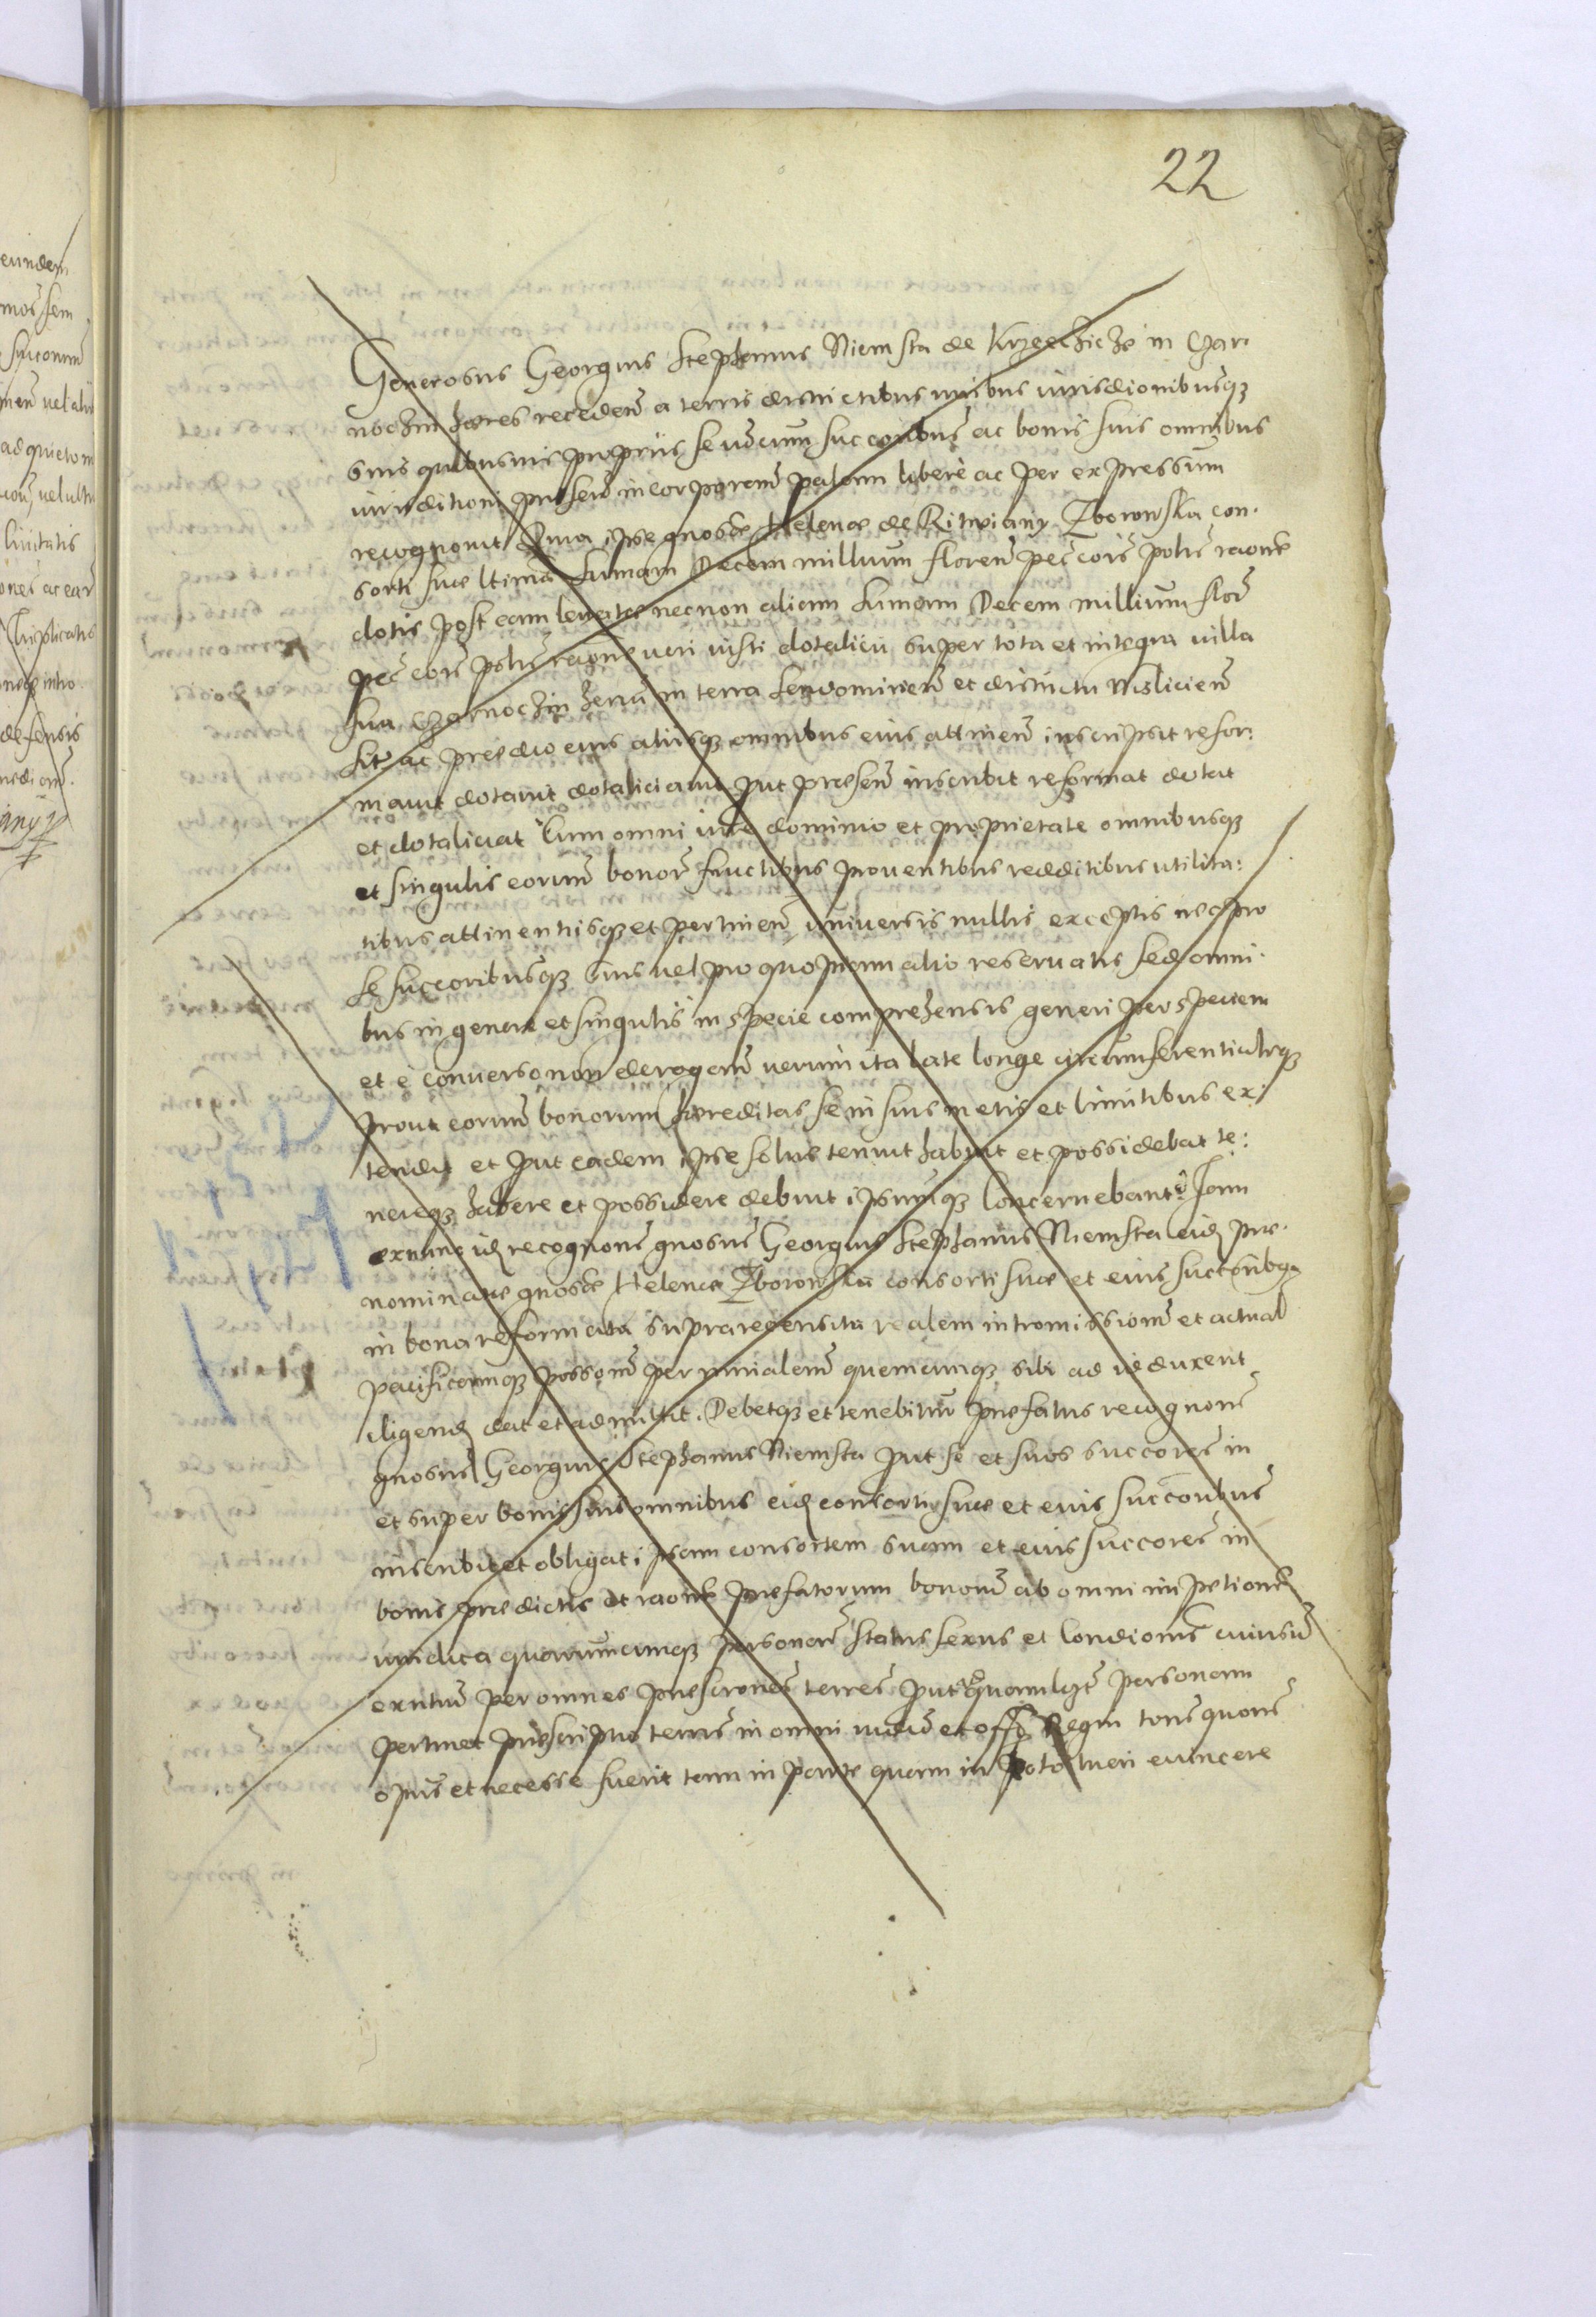 22
Generosus Georgius Stephanus Niemsta de Krzeczicze in Czar-
noczin haeres recedend a terris districtibus iuribus iurisdionibusqz
suis quibusuis proprijs se vdcum succoribus ac bonis suis omnibus
iurisditioni praesen incorporand palam libere ac per expressum
recognouit Quia ipse gnosae Helenae de Ritwiany Zborowska con-
sorti suae ltimae Sumam Decem millium floren pec cois polis raone
dotis post eam leuatae necnon aliam sumam Decem millium flor
pec cois polis raone veri iusti dotalicii super tota et integra villa
sua Czarnoczin haered in terra Sendomirien et districtu Vislicien
sita ac praedio eius alijsqz omnibus eius attinen inscripsit refor-
mauit dotauit dotaliciauit put praesen inscribit reformat dotat
et dotaliciat Cum omni iure dominio et proprietate omnibusqz
et singulis eorum bonor fructibus prouentibus redditibus utilita:
tibus attinentijsqz et pertinen vniuersis nullis exceptis neqz pro
se succoribusqz suis vel pro quopiam alio reseruatis sed omni-
bus in genere et singulis in specie comprehensis generi per speciem
et e conuerso non derogand verum ita late longe circumferentialrqz
prout eorum bonorum haereditas se in suis metis et limitibus ex-
tendit et put eadem ipse solus tenuit habuit et possidebat te:
nereqz habere et possidere debuit ipsumqz concernebant Jam
exnunc idz recognons gnosus Georgius Stephanus Niemsta eidz prae-
nominatae gnosae Helenae Zborowska consorti suae et eius succoribqz
in bona reformata supra recensita realem intromissione et actual
pacificamqz posssone per minialem quemcunqz sibi ad id duxerit
eligend dat et admittit. Debetqz et tenebitur praefatus recognons
gnosus Georgius Stephanus Niemsta put se et suos succores in
et super bonis suis omnibus eidz consorti suae et eius succoribus
inscribit et obligat ipsam consortem suam et eius succores in
bonis praedictis et raone praefatorum bonor ab omni impetione
iuridica quarumcunqz personar status sexus et condionis cuiusuis
exntium per omnes praescrones terres put quamlizt personam
pertinet praescriptio terris in omni iudio et offo Regni tons quons
opus et necesse fuerit tam in parte quam in toto tueri euincere